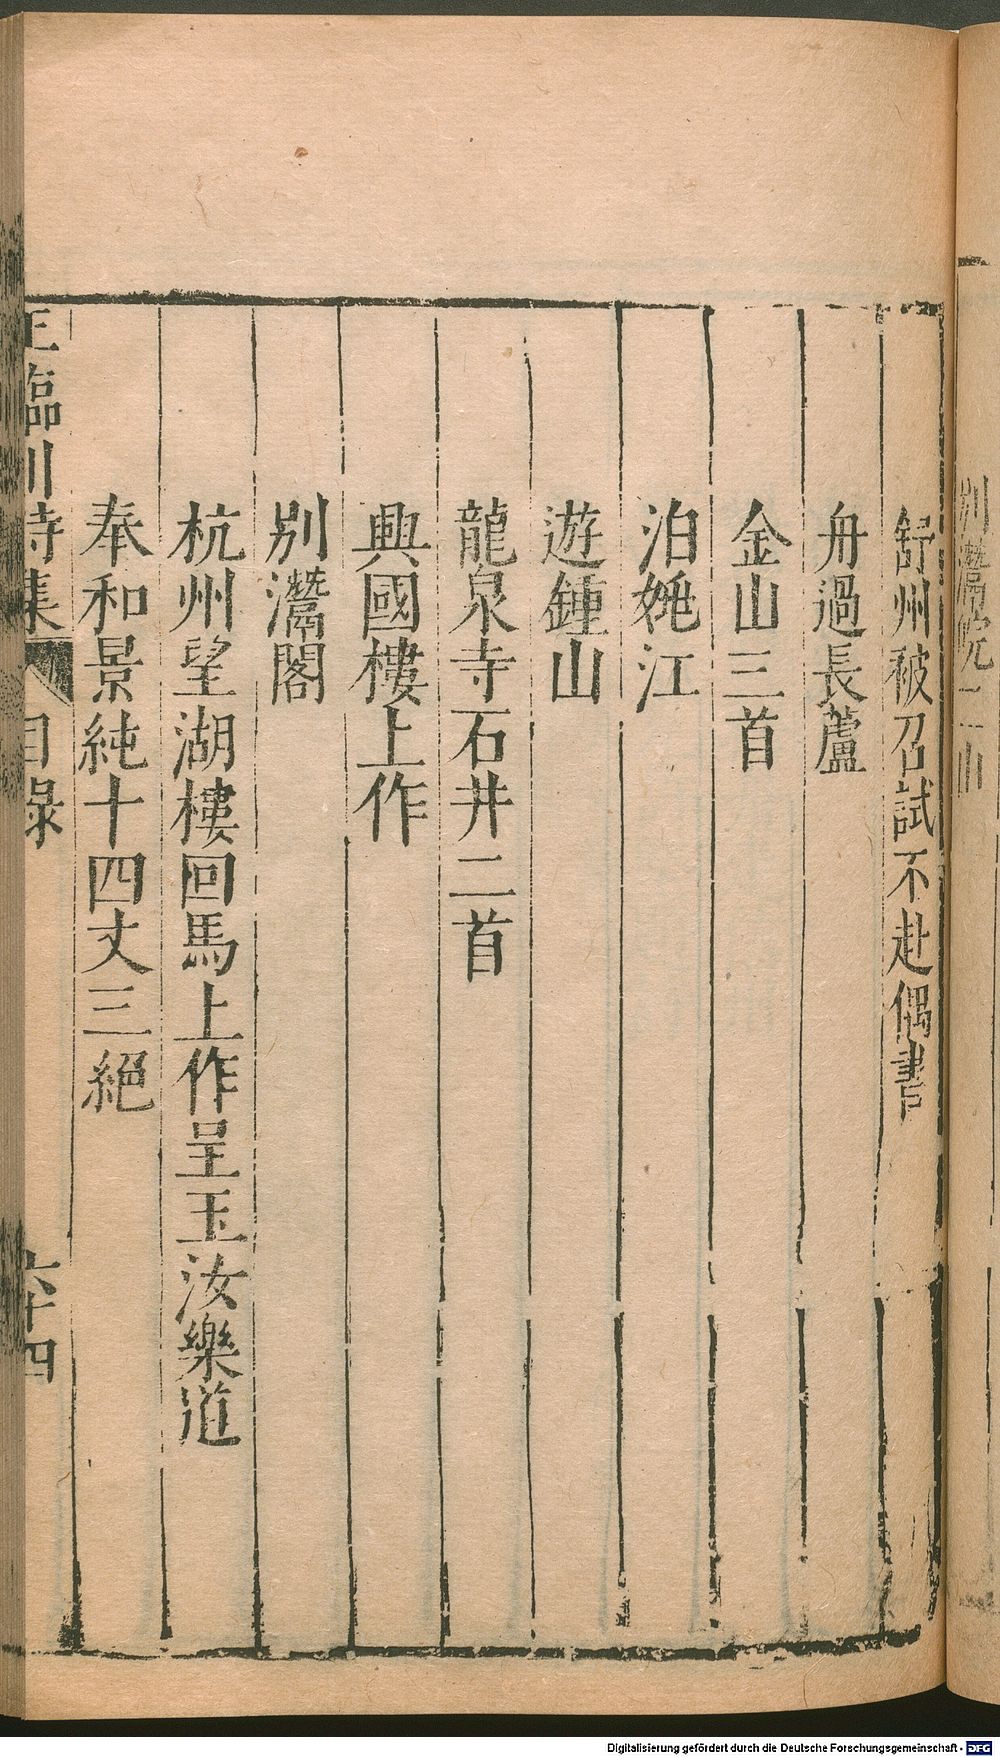 舒州被召試不赴偶書
舟過長蘆
金山三首
泊姚江
遊鍾山
龍泉寺石井二首
興國樓上作
別灊閣
杭州望湖樓回馬上作呈玉汝樂道
奉和景純十四丈三絕
王臨川詩集 目錄 六十四
Digitalisierung gefördert durch die Deutsche Forschungsgemeinschaft - DFG